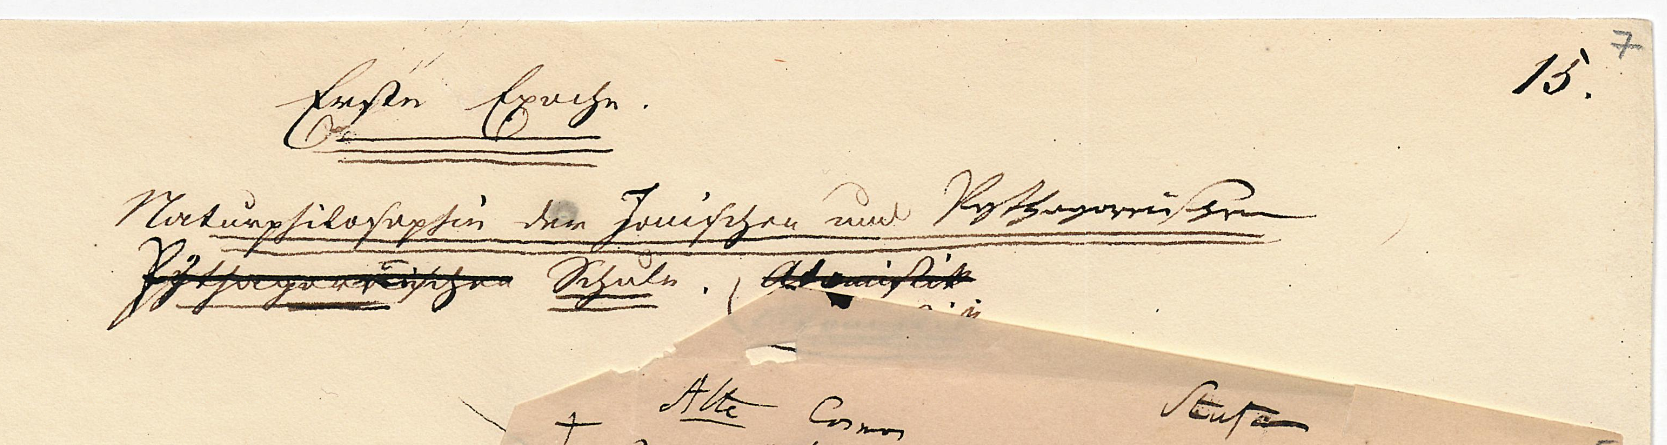 7
15.
Erste Epoche.
Naturphilosophie der Ionischen und Pythagoreischen
Pythagoreischen Schule. (Atomistik
Alte Cosmos